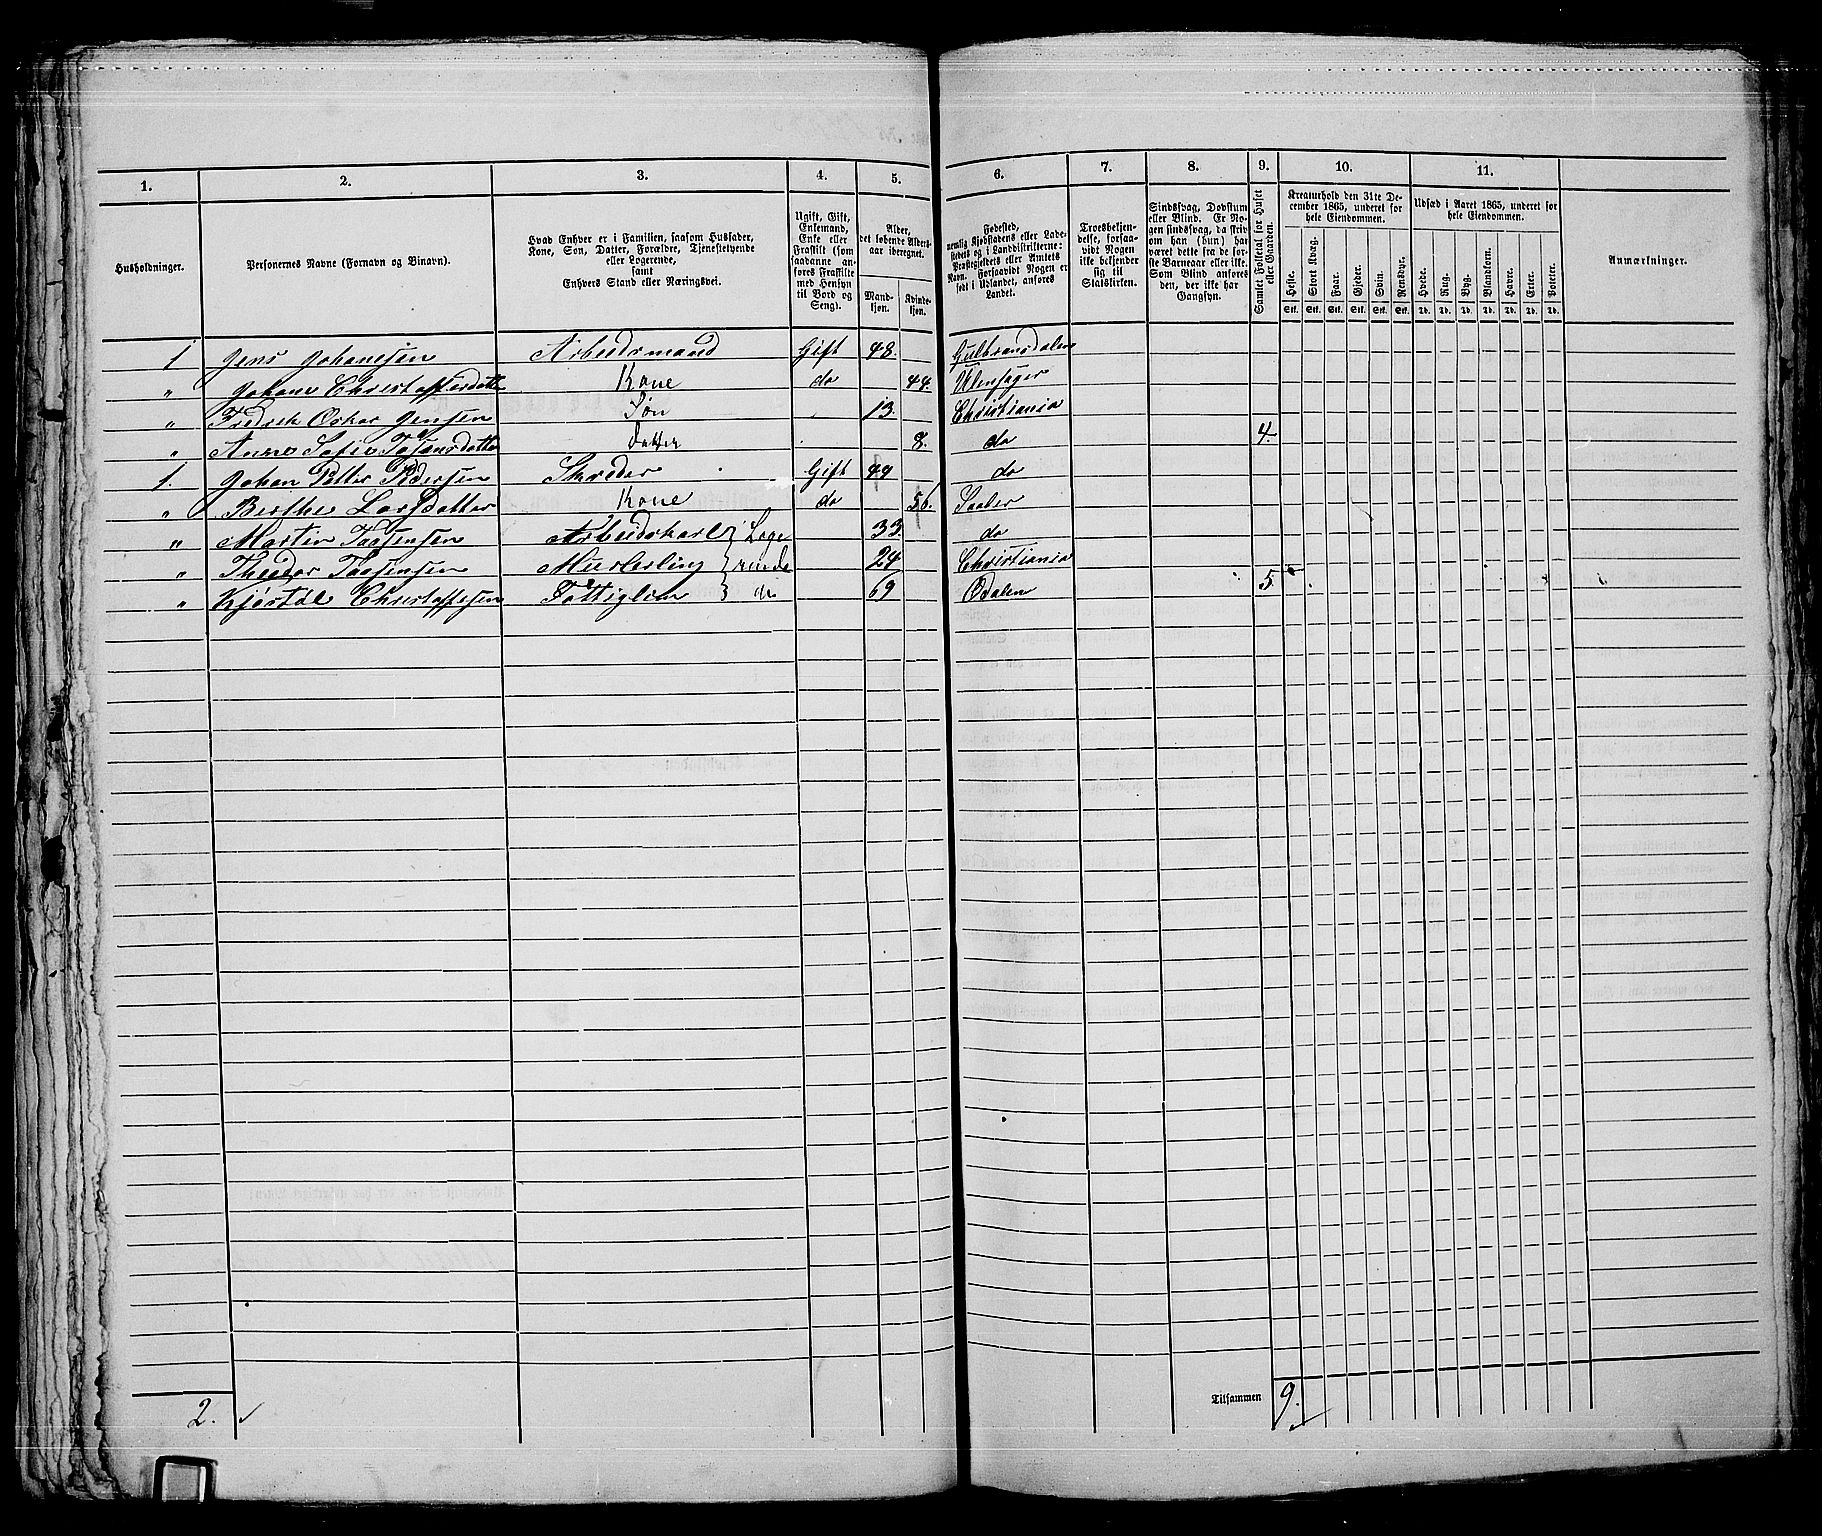 1. 2. 3. 4. 5. 6. 7. 8. 9. 10. 11.
Husholdninger.
Personernes Navne (Fornavn og Binavn).
Hvad Enhver er i Familien, saasom Husfader,
Kone, Søn, Datter, Forældre, Tjenestetyende
eller Logerende,
samt
Enhvers Stand eller Næringsvei.
Ugift, Gift,
Enkemand,
Enke eller
Fraskilt (som
saadanne anføres
Fraskilte
med Hensyn
til Bord og
Seng).
Alder,
det løbende Aldersaar
iberegnet.
Mandkjøn.
Kvindekjøn.
Fødested,
nemlig Kjøbstadens eller Ladestedets
og i Landdistrikterne:
Præstegjeldets eller Amtets
Navn. Forsaavidt Nogen er
født i Udlandet, anføres
Landet.
Troesbekjendelse,
forsaavidt
Nogen
ikke bekjender
sig til
Statskirken.
Sindssvag, Døvstum
eller Blind. Er Nogen
sindssvag, da skrives
om han (hun) har
været dette fra de første
Barneaar eller ikke.
Som Blind anføres
den, der ikke har
Gangsyn.
Samlet Folketal for Huset
eller Gaarden.
Kreaturhold den 31te December
1865, underet for
hele Eiendommen.
Heste. Stort Kvæg. Faar. Gjeder. Svin. Rensdyr.
Stk. Stk. Stk. Stk. Stk. Stk.
Udsæd i Aaret 1865, underet for
hele Eiendommen.
Hvede. Rug. Byg. Blandkorn. Havre. Erter. Poteter.
Td. Td. Td. Td. Td. Td. Td.
Anmærkninger.
1 Jens Johanesen Arbeidsmand Gift 48. Gulbransdalen
" Johane Christoffersdatter Kone do 44. Ulensager
" Fredrik Oskar Jensen Søn 13. Christiania
" Anne Sofie Datter 8. do 4.
1. Johan Petter Pedersen Skreder Gift 44 do
" Berthe Larsdatter Kone do 56. Saaber
" Martin Arbeidskarl } Loge 33. do
" Theodor Murlerling } rende 24 Christiania
" Christoffersen Fattiglem } do 69 Odalen 5.
2. Tilsammen 9.